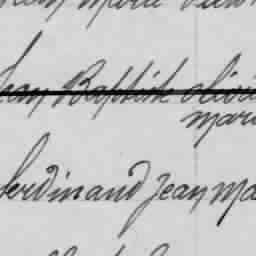 Jean Baptiste olivi
mari
ferdinand jean ma